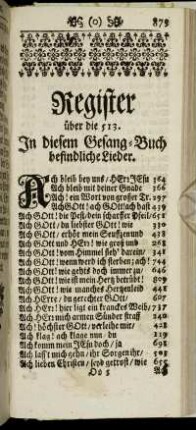 (o) 879
Register
über die 513.
In diesem Gesang-Buch
befindliche Lieder.
Ach bleib bey uns/HErr JEsu 364
Ach bleib mit deiner Gnade 366
Ach! ein Wort von grosser Tr. 197
Ach GOtt! ach GOtt! ach hast 239
Ach GOtt! die Pest, dein scharffer Pfeil/ 651
Ach GOtt, du liebster GOtt! wie 330
Ach GOtt/ erhör mein Seufftzen und 418
Ach GOtt und HErr! wie groß und 265
Ach GOtt! vom Himmel sieh' darein/ 343
Ach GOtt! wenn werd ich sterben; ach! 744
Ach GOtt! wie gehts doch immer zu/ 646
Ach GOtt! wie ist mein Hertz betrübt! 809
Ach GOtt! wie manches Hertzenleid 445
Ach HErre/ du gerechter GOtt/ 607
Ach HErr! hier ligt ein kranckes Weib/ 737
Ach HErr: mich armen Sünder straff 240
Ach! höchster GOtt/ verleihe mir/ 423
Ach klag! ach klage nun/ du 119
Ach komm mein JEsu doch/ ja 698
Ach laßt mich gehn/ ihr Sorgen ihr/ 501
Ach lieben Christen/ seyd getrost/ wie 655